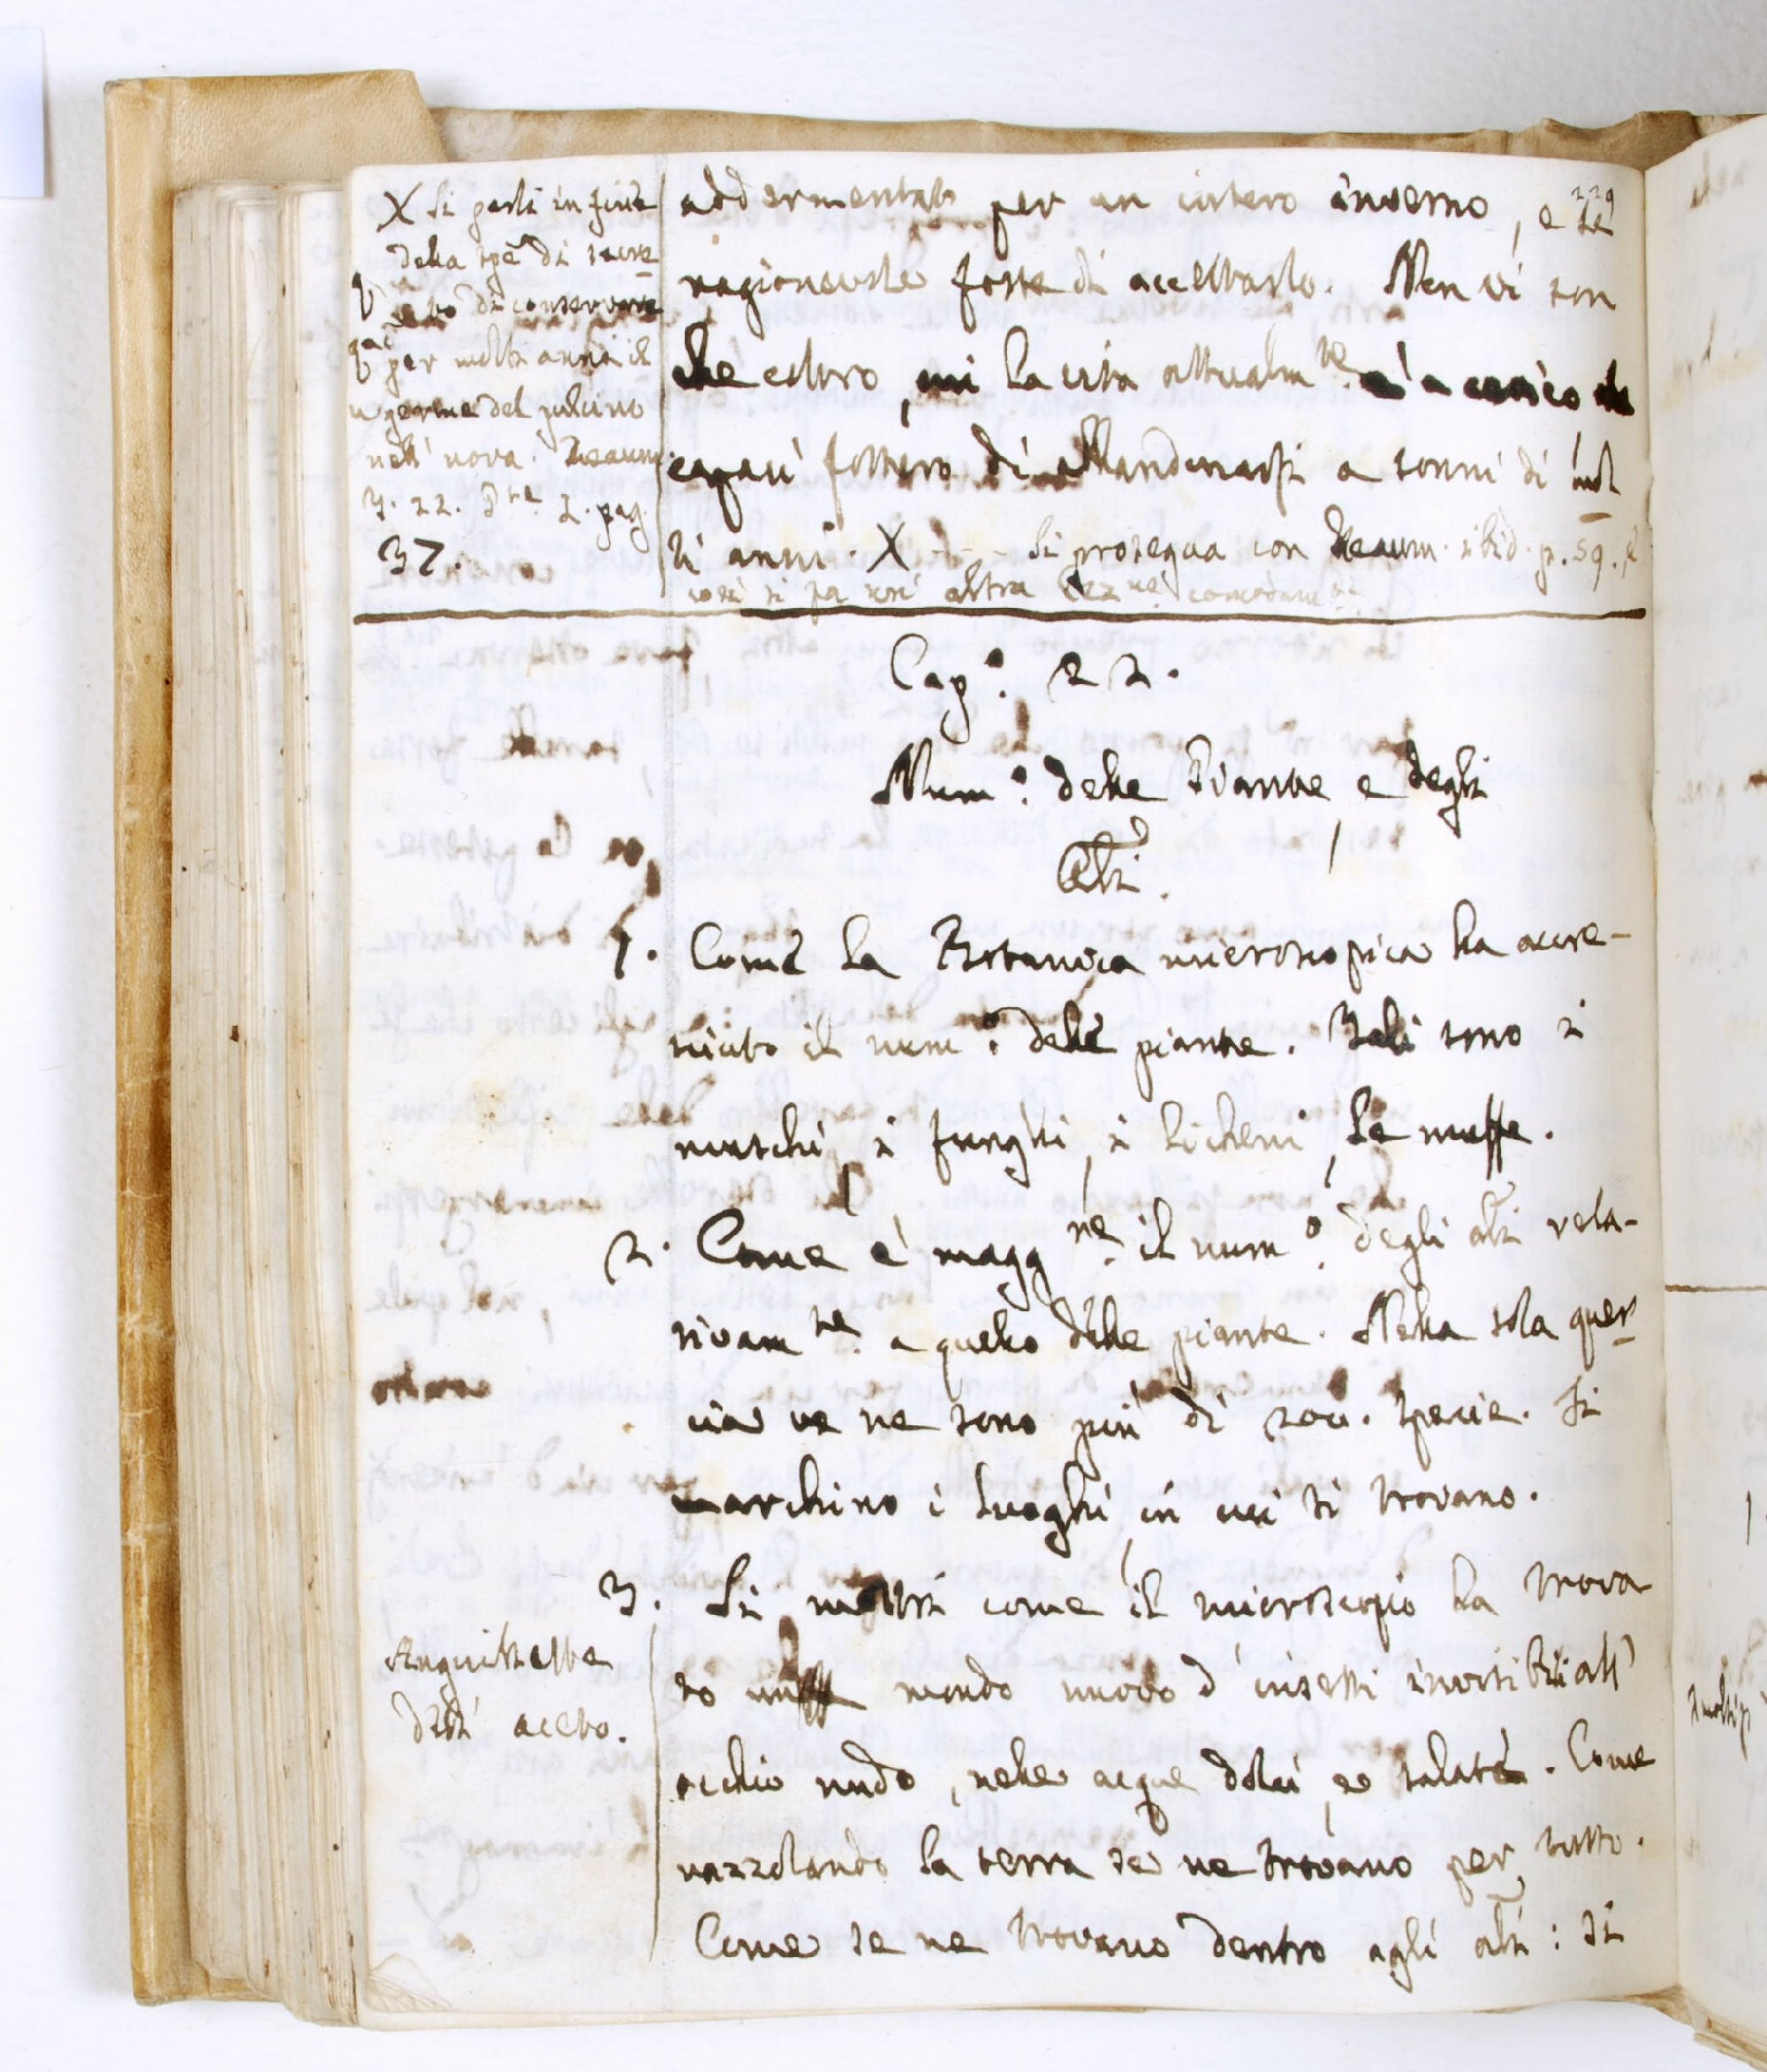 229
addormentato per un intero inverno, e se
ragionevole fosse di accettarlo. Non vi son
che coloro, cui la vita attualm.te
capaci fossero di abbandonarsi a sonni di mol
ti anni. X - - - Si prosegua con Reaum. ibid. p. 59.
così si fa altra
X Si parli in fine
della spe di
di conservare
per molti anni il
germe del pulcino
nell' uova. Reaum.
T. 22. 2. pag.
37.
Cap.o 22.
Num.o delle Piante, e degli
Ali.
1. Come la Botanica microscopica ha accre-
sciuto il num.o delle piante. Tali sono i
muschi, i funghi, i licheni, le muffe.
2. Come è magg.re il num.o degli ali rela-
tivam.te a quello delle piante. Nella sola quer
cia ve ne sono più di 200. specie. Si
marchino i luoghi, in cui si trovano.
3. Si mostri come il microscopio ha trova
to mondo nuovo d' insetti invisibili all'
occhio nudo, nelle acque dolci, e salate. Come
razzolando la terra se ne trovano per tutto.
Come se ne trovano dentro agli ali: si
Anguillette
dell' aceto.